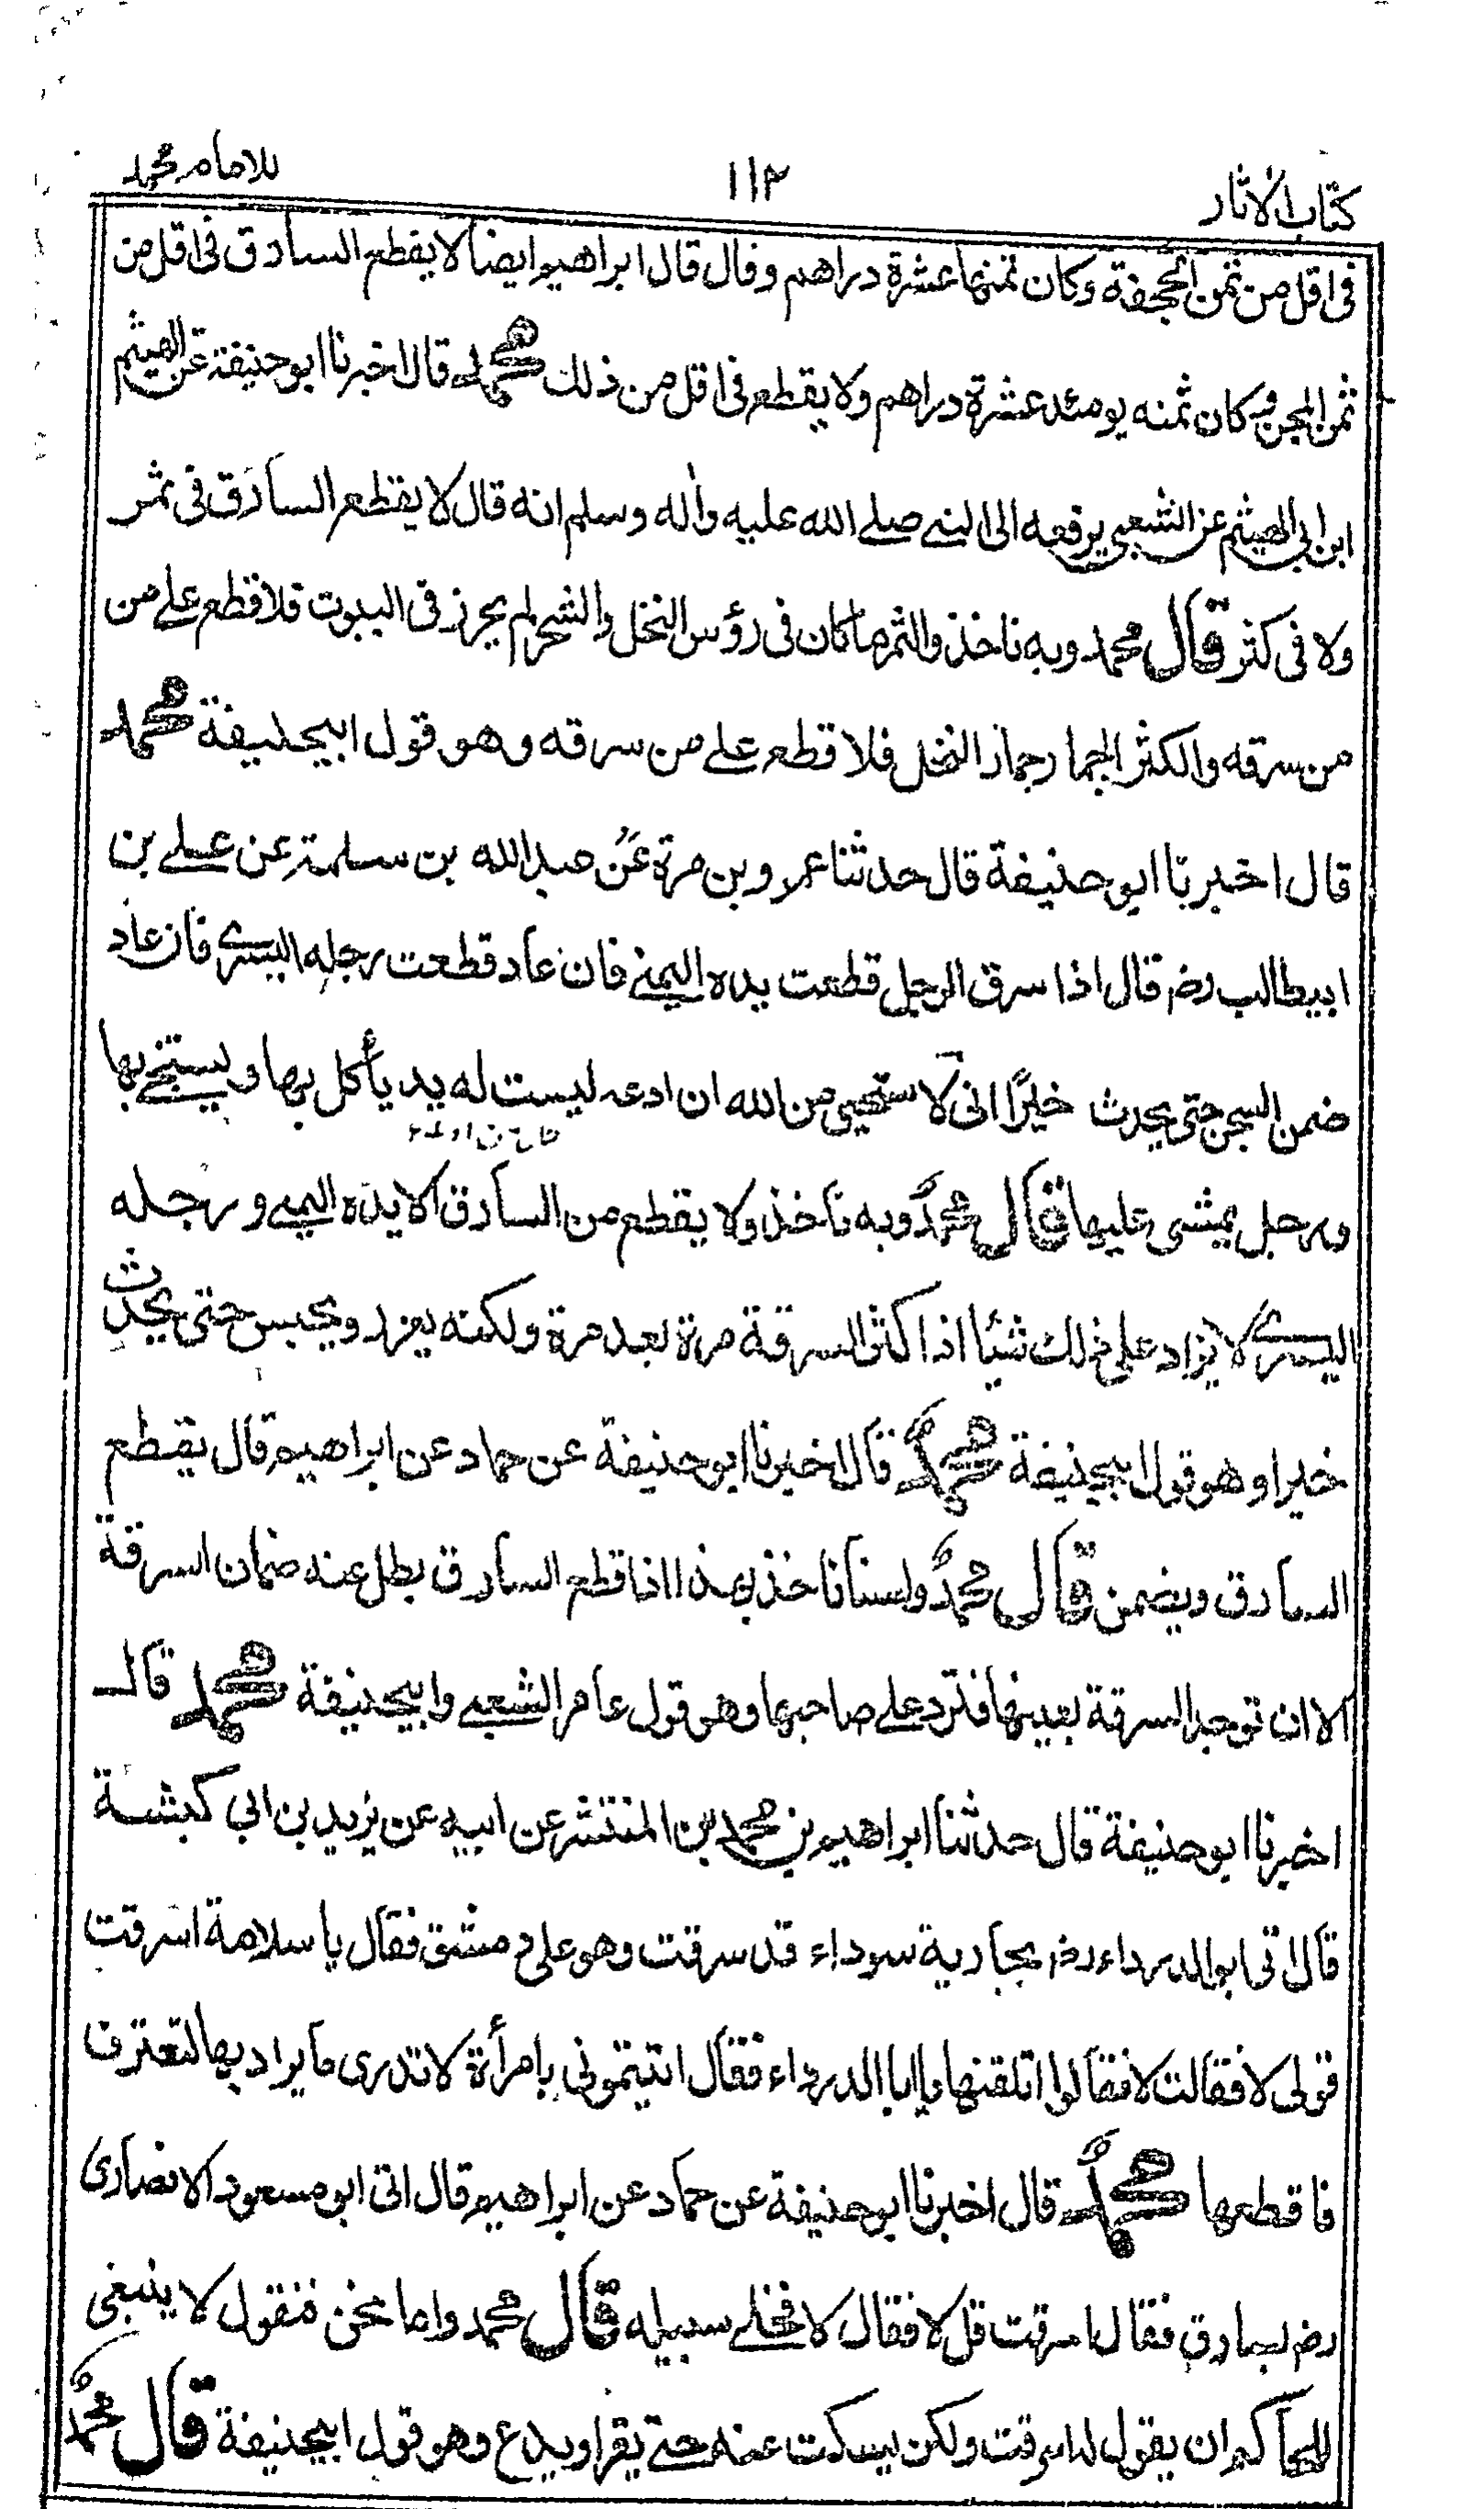 كتاب الآثار
١١٢
للامام محمد
فى اقل من ثمن الحجفة وكان ثمنها عشرة دراهم وقال قال ابراهيم ايضا لا يقطع السارق فى اقل من
ثمن المجن وكان ثمنه يومئذ عشرة دراهم ولا يقطع فى اقل من ذلك محمد قال اخبرنا ابو حنيفة عن الهيثم
ابن ابى الهيثم عن الشعبى يرفعه الى النبى صلے الله عليه واٰله وسلم انه قال لا يقطع السارق فى ثمر
ولا فى كثر قال محمد وبه ناخذ والثمر ما كان فى رؤس النخل والشجر لم يحرز فى البيوت فلا قطع على من
من سرقه والكثر الجمار جمار النخل فلا قطع على من سرقه وهو قول ابيحنيفة محمد
قال اخبرنا ابو حنيفة قال حدثنا عمرو بن مرة عن عبد الله بن سلمة عن على بن
ابيطالب رضـ قال اذا سرق الرجل قطعت يده اليمنے فان عاد قطعت رجله اليسرے فان عاد
ضمن السجن حتى يحدث خيرًا انى لاستحيى من الله ان ادعه ليست له يد يأكل بها ويستنجے بها
ورجل يمشى عليها قال محمد وبه ناخذ ولا يقطع من السارق الا يده اليمنے ورجله
اليسرے لا يزاد على ذلك شيئا اذا كثر السرقة مرة بعد مرة ولكنه يعزر ويحبس حتى يحدث
خيرا وهو قول ابيحنيفة محمد قال اخبرنا ابو حنيفة عن حماد عن ابراهيم قال يقطع
السارق ويضمن قال محمد ولسنا ناخذ بهذا اذا قطع السارق بطل عنه ضمان السرقة
الا ان توجد السرقة بعينها فترد على صاحبها وهو قول عامر الشعبے وابيحنيفة محمد قال
اخبرنا ابو حنيفة قال حدثنا ابراهيم بن محمد بن المنتشر عن ابيه عن يزيد بن ابى كبشة
قال اتى ابو الدرداء رضـ بجارية سوداء قد سرقت وهو على دمشق فقال يا سلامة اسرقت
قولى لا فقالت لا فقالوا اتلقنها يا ابا الدرداء فقال اتيتمونى بامرأة لا تدرى ما يراد بها لتعترف
فاقطعها محمد قال اخبرنا ابو حنيفة عن حماد عن ابراهيم قال اتى ابو مسعود الانصارى
رضـ بسارق فقال اسرقت قل لا فقال لا فخلے سبيله قال محمد واما نحن فنقول لا ينبغى
للحاكم ان يقول له اسرقت ولكن يسكت عنه حتے يقر او يدع وهو قول ابيحنيفة قال محمد